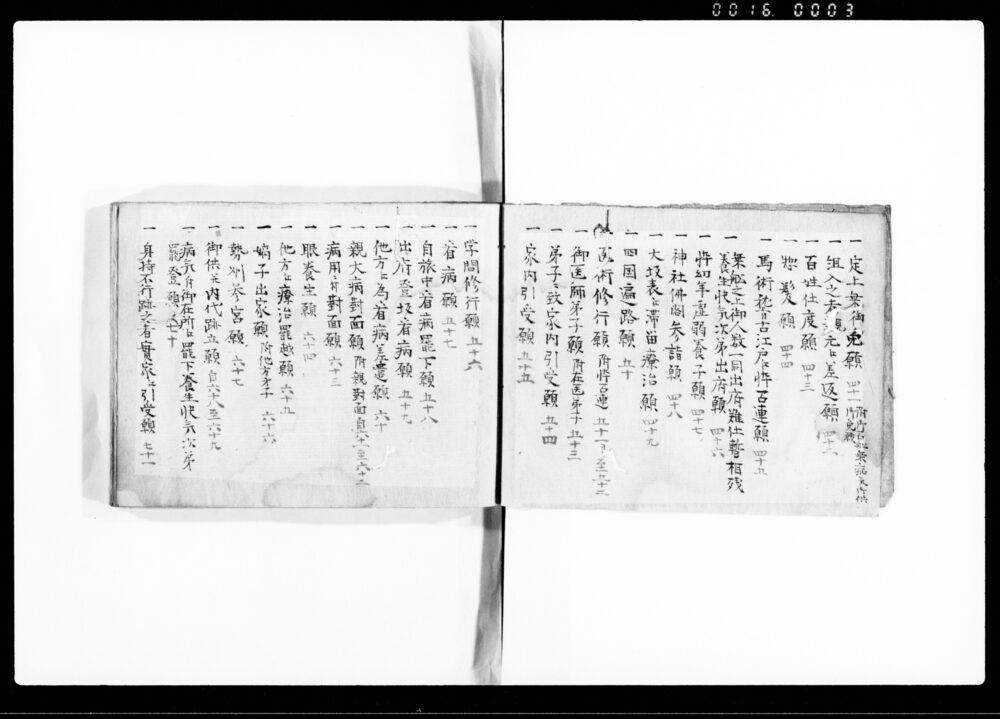 0016 0003
一 定上乗御免願 四十一
一 組入之者 元江差返願 四十二
一 百性仕度願 四十三
一 惣髪願 四十四
一 馬術稽古江戸江忰召連願 四十五
一 乗船之上御人数一同出府難仕暫相残
養生快気次第出府願 四十六
一 忰幼年虚弱養子願 四十七
一 神社佛閣参詣願 四十八
一 大坂表江滞留療治願 四十九
一 四国遍路願 五十
一 医術修行願 附忰召連 五十一 至五十二
一 御医師弟子願 附在医弟子 五十三
一 弟子江致家内引受願 五十四
一 家内引受願 五十五
一 学問修行願 五十六
一 看病願 五十七
一 自旅中看病罷下願 五十八
一 出府登坂看病願 五十九
一 他方江為看病差遣願 六十
一 親大病對面願 附親對面 自六十一至六十二
一 病用ニ付對面願 六十三
一 眼養生願 六十四
一 他方江療治罷越願 六十五
一 嫡子出家願 附他方弟子 六十六
一 勢州参宮願 六十七
一 御供之内代跡立願 自六十八至六十九
一 病気ニ付御在所江罷下養生快気次第
罷登願 七十
一 身持不行跡之者實家江引受願 七十一